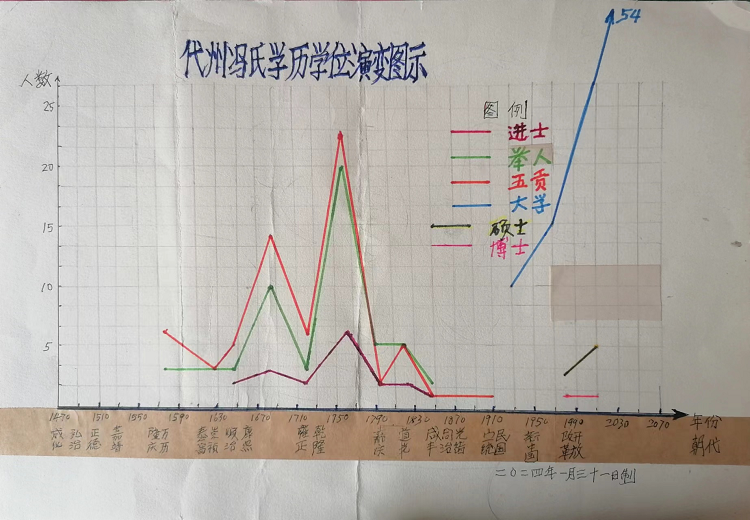 54
代州冯氏学历学位演变图示
人数
25
20
15
10
5
图例
进士
举人
五贡
大学
硕士
博士
1470 1510 1550 1590 1630 1670 1710 1750 1790 1830 1870 1910 1950 1990 2030 2070 年份
成化 弘治 正德 嘉靖 隆庆 万历 崇祯 顺治 康熙 雍正 乾隆 嘉庆 道光 咸丰 同治 光绪 宣统 民国 改革 开放 朝代
二〇二四年一月三十一日制